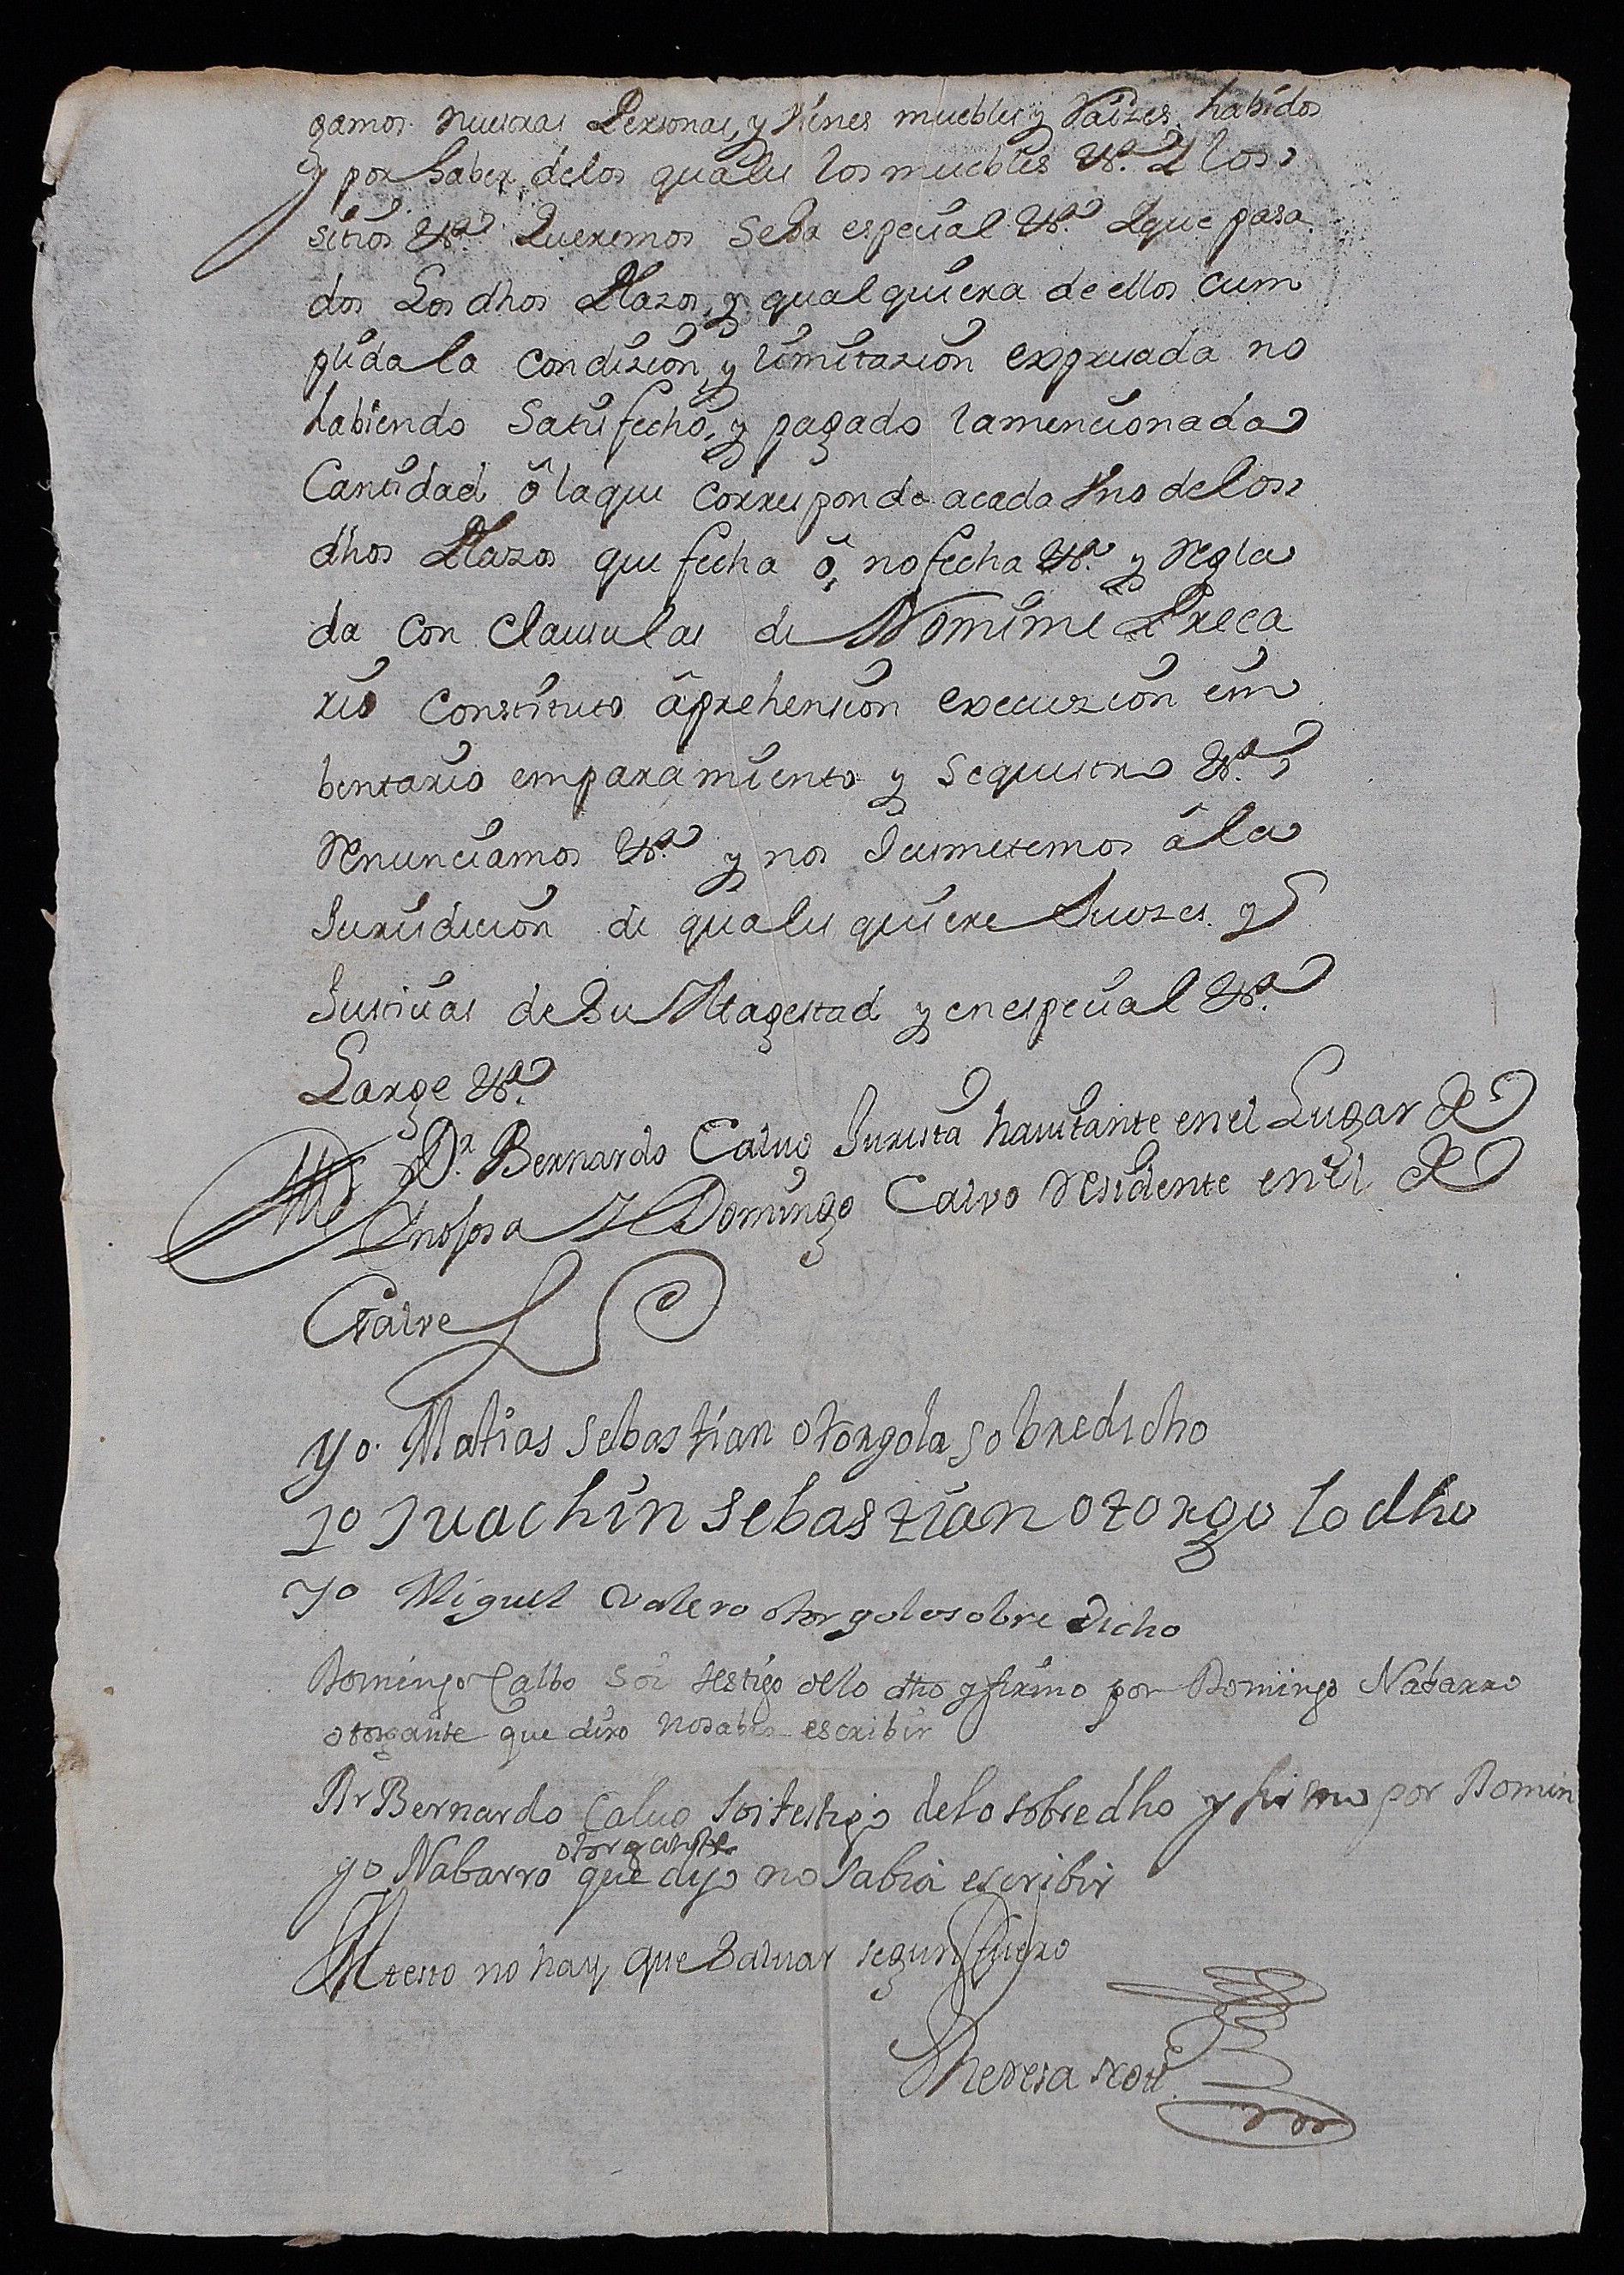 gamos nuestras Personas, y vienes muebles y Raizes habidos
y por haber, delos quales los muebles &ª Y los
sitios &ª Queremos Seha especial &ª Yque pasa
dos Los dhos Plazos, y qualquiera de ellos cum
plida la condizion, y limitazion expresada no
habiendo Satisfecho, y pagado lamencionada
Cantidad ô laque corresponda acada Vno delos
dhos Plazos que fecha ô, no fecha &ª y Regla
da con clausulas de Nomine Preca
rio constituto âprehension execuzion em
bentario emparamiento y sequestro &ª
Renunciamos &ª y nos Jusmetemos â la
Jurisdicion de quales quiere Juezes y
Justicias de Su Magestad y en especial &ª
Large &ª
Dr. Bernardo Calvo Jurista havitante en el Lugar de
Y Domingo Calvo Residente en el de
Galve
yo Matias Sebastian otorgolo sobredicho
yo Juachin sebastian otorgo lo dho
yo Miguel Valero otorgolosobre dicho
Domingo Calbo Soi testigo delo dho y firmo por Domingo Nabarro
otorgante que dixo nosabia escribir
Dr Bernardo Calvo soi testigo delo sobredho y firmo por Domin
go Nabarro otorgante que dijo no sabia escribir
Atesto no hay que Salvar segun fuero
Theresa Nott.